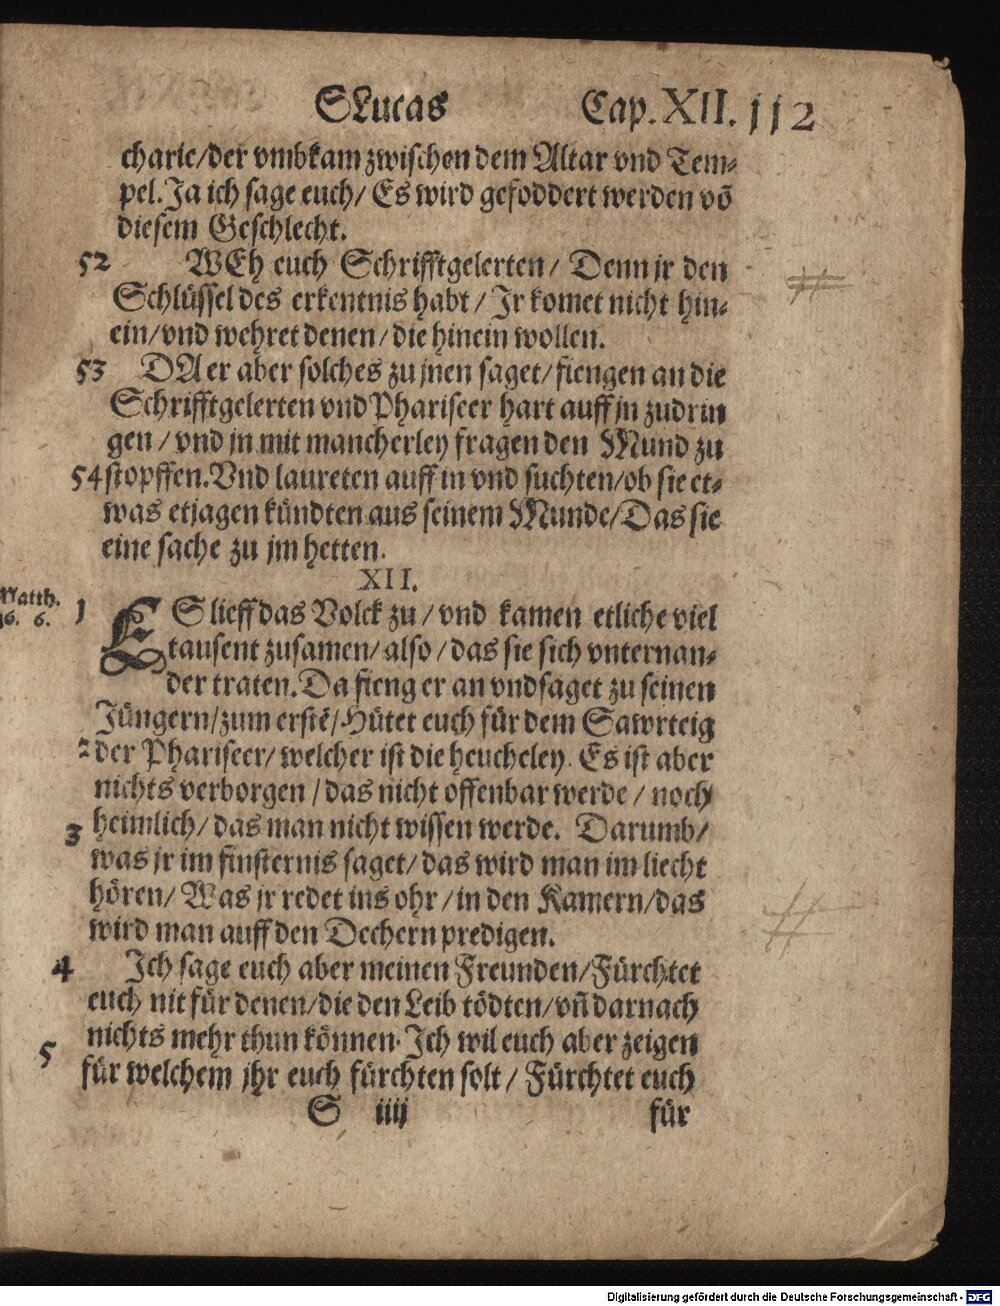 SLucas Cap. XII. 112
charie/der vmbkam zwischen dem Altar vnd Tem-
pel. Ja ich sage euch/ Es wird gefoddert werden võ
diesem Geschlecht.
52 WEh euch Schrifftgelerten/ Denn jr den
Schlüssel des erkentnis habt/ Jr komet nicht hin-
ein/vnd wehret denen/die hinein wollen.
53 DA er aber solches zu jnen saget/fiengen an die
Schrifftgelerten vnd Phariseer hart auff jn zudrin
gen/ vnd jn mit mancherley fragen den Mund zu
54 stopffen. Vnd laureten auff in vnd suchten/ob sie et-
was erjagen kündten aus seinem Munde/Das sie
eine sache zu jm hetten.
XII.
Matth. 1 ES lieff das Volck zu/ vnd kamen etliche viel
16. 6. tausent zusamen/also/das sie sich vnternan-
der traten. Da fieng er an vnd saget zu seinen
Jüngern/zum erstẽ/Hütet euch für dem Sawrteig
2 der Phariseer/welcher ist die heucheley. Es ist aber
nichts verborgen/das nicht offenbar werde/ noch
3 heimlich/das man nicht wissen werde. Darumb/
was jr im finsternis saget/das wird man im liecht
hören/ Was jr redet ins ohr/in den Kamern/das
wird man auff den Dechern predigen.
4 Ich sage euch aber meinen Freunden/Fürchtet
euch nit für denen/die den Leib tödten/vñ darnach
nichts mehr thun können. Ich wil euch aber zeigen
5 für welchem jhr euch fürchten solt/ Fürchtet euch
S iiij für
Digitalisierung gefördert durch die Deutsche Forschungsgemeinschaft - DFG